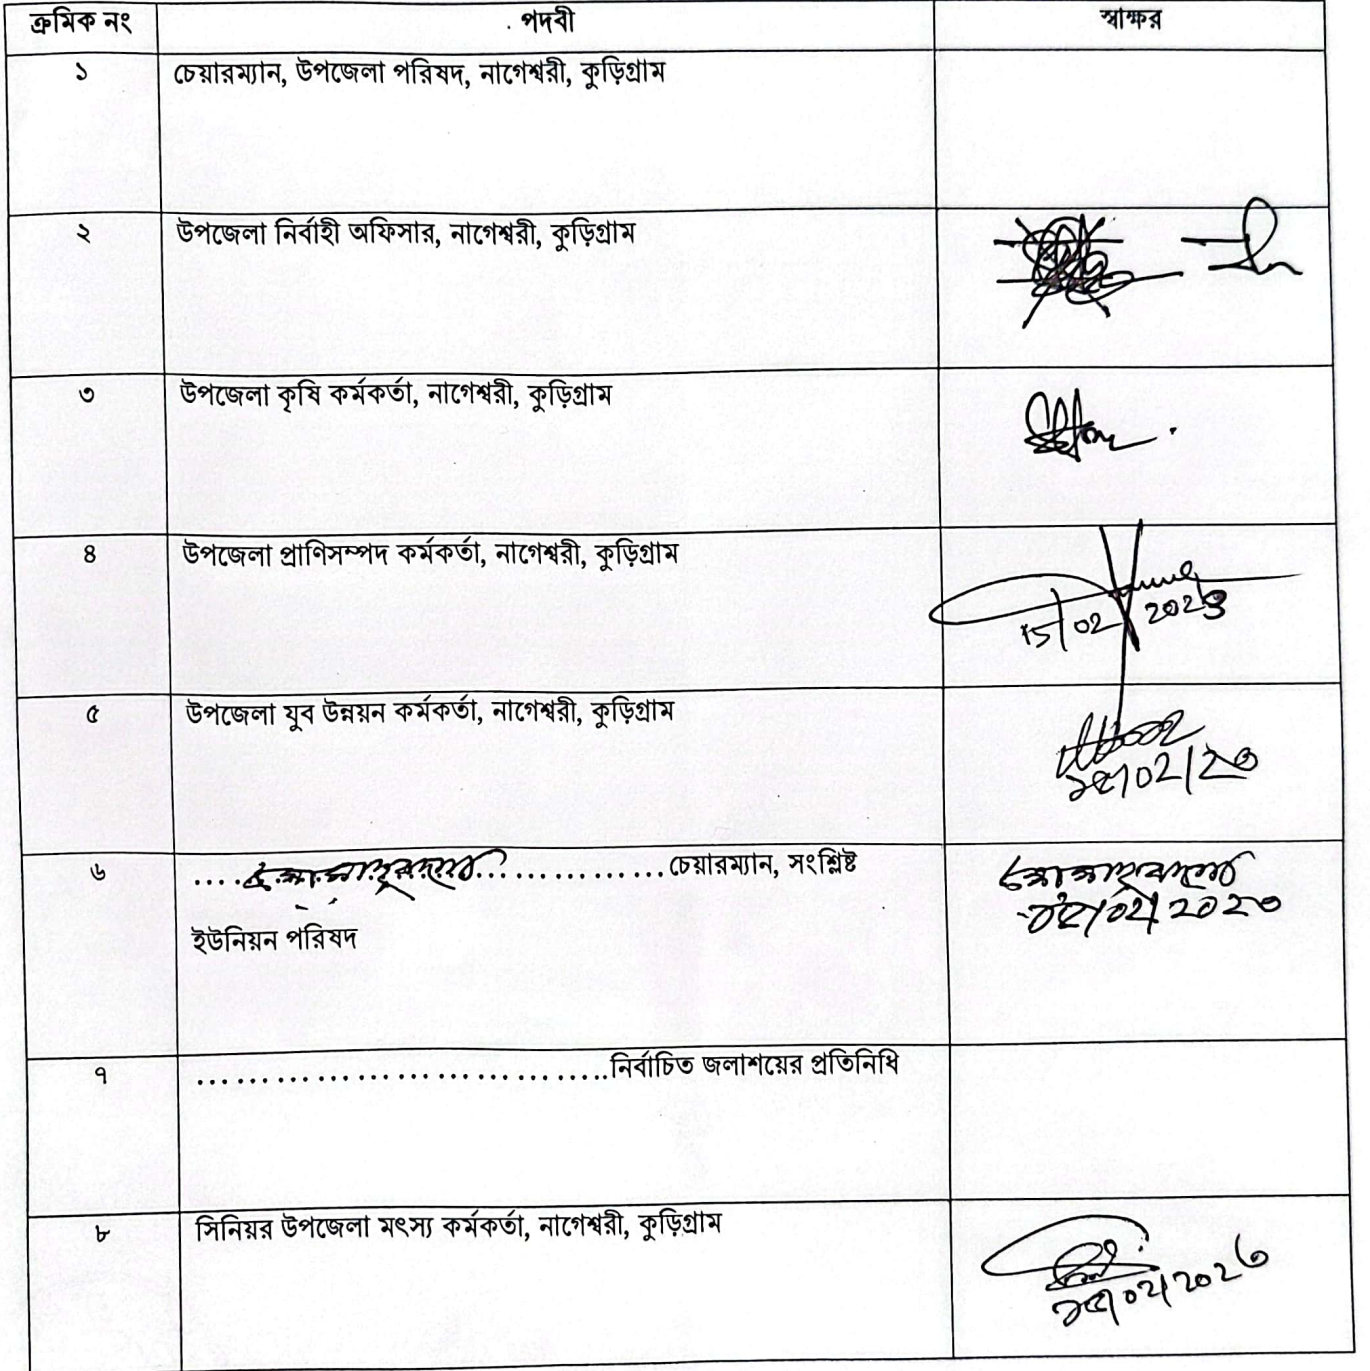 ক্রমিক নং পদবী স্বাক্ষর
১ চেয়ারম্যান, উপজেলা পরিষদ, নাগেশ্বরী, কুড়িগ্রাম
২ উপজেলা নির্বাহী অফিসার, নাগেশ্বরী, কুড়িগ্রাম
৩ উপজেলা কৃষি কর্মকর্তা, নাগেশ্বরী, কুড়িগ্রাম
৪ উপজেলা প্রাণিসম্পদ কর্মকর্তা, নাগেশ্বরী, কুড়িগ্রাম
15/02/2023
৫ উপজেলা যুব উন্নয়ন কর্মকর্তা, নাগেশ্বরী, কুড়িগ্রাম
৬ ................................চেয়ারম্যান, সংশ্লিষ্ট
ইউনিয়ন পরিষদ
৭ ................................নির্বাচিত জলাশয়ের প্রতিনিধি
৮ সিনিয়র উপজেলা মৎস্য কর্মকর্তা, নাগেশ্বরী, কুড়িগ্রাম